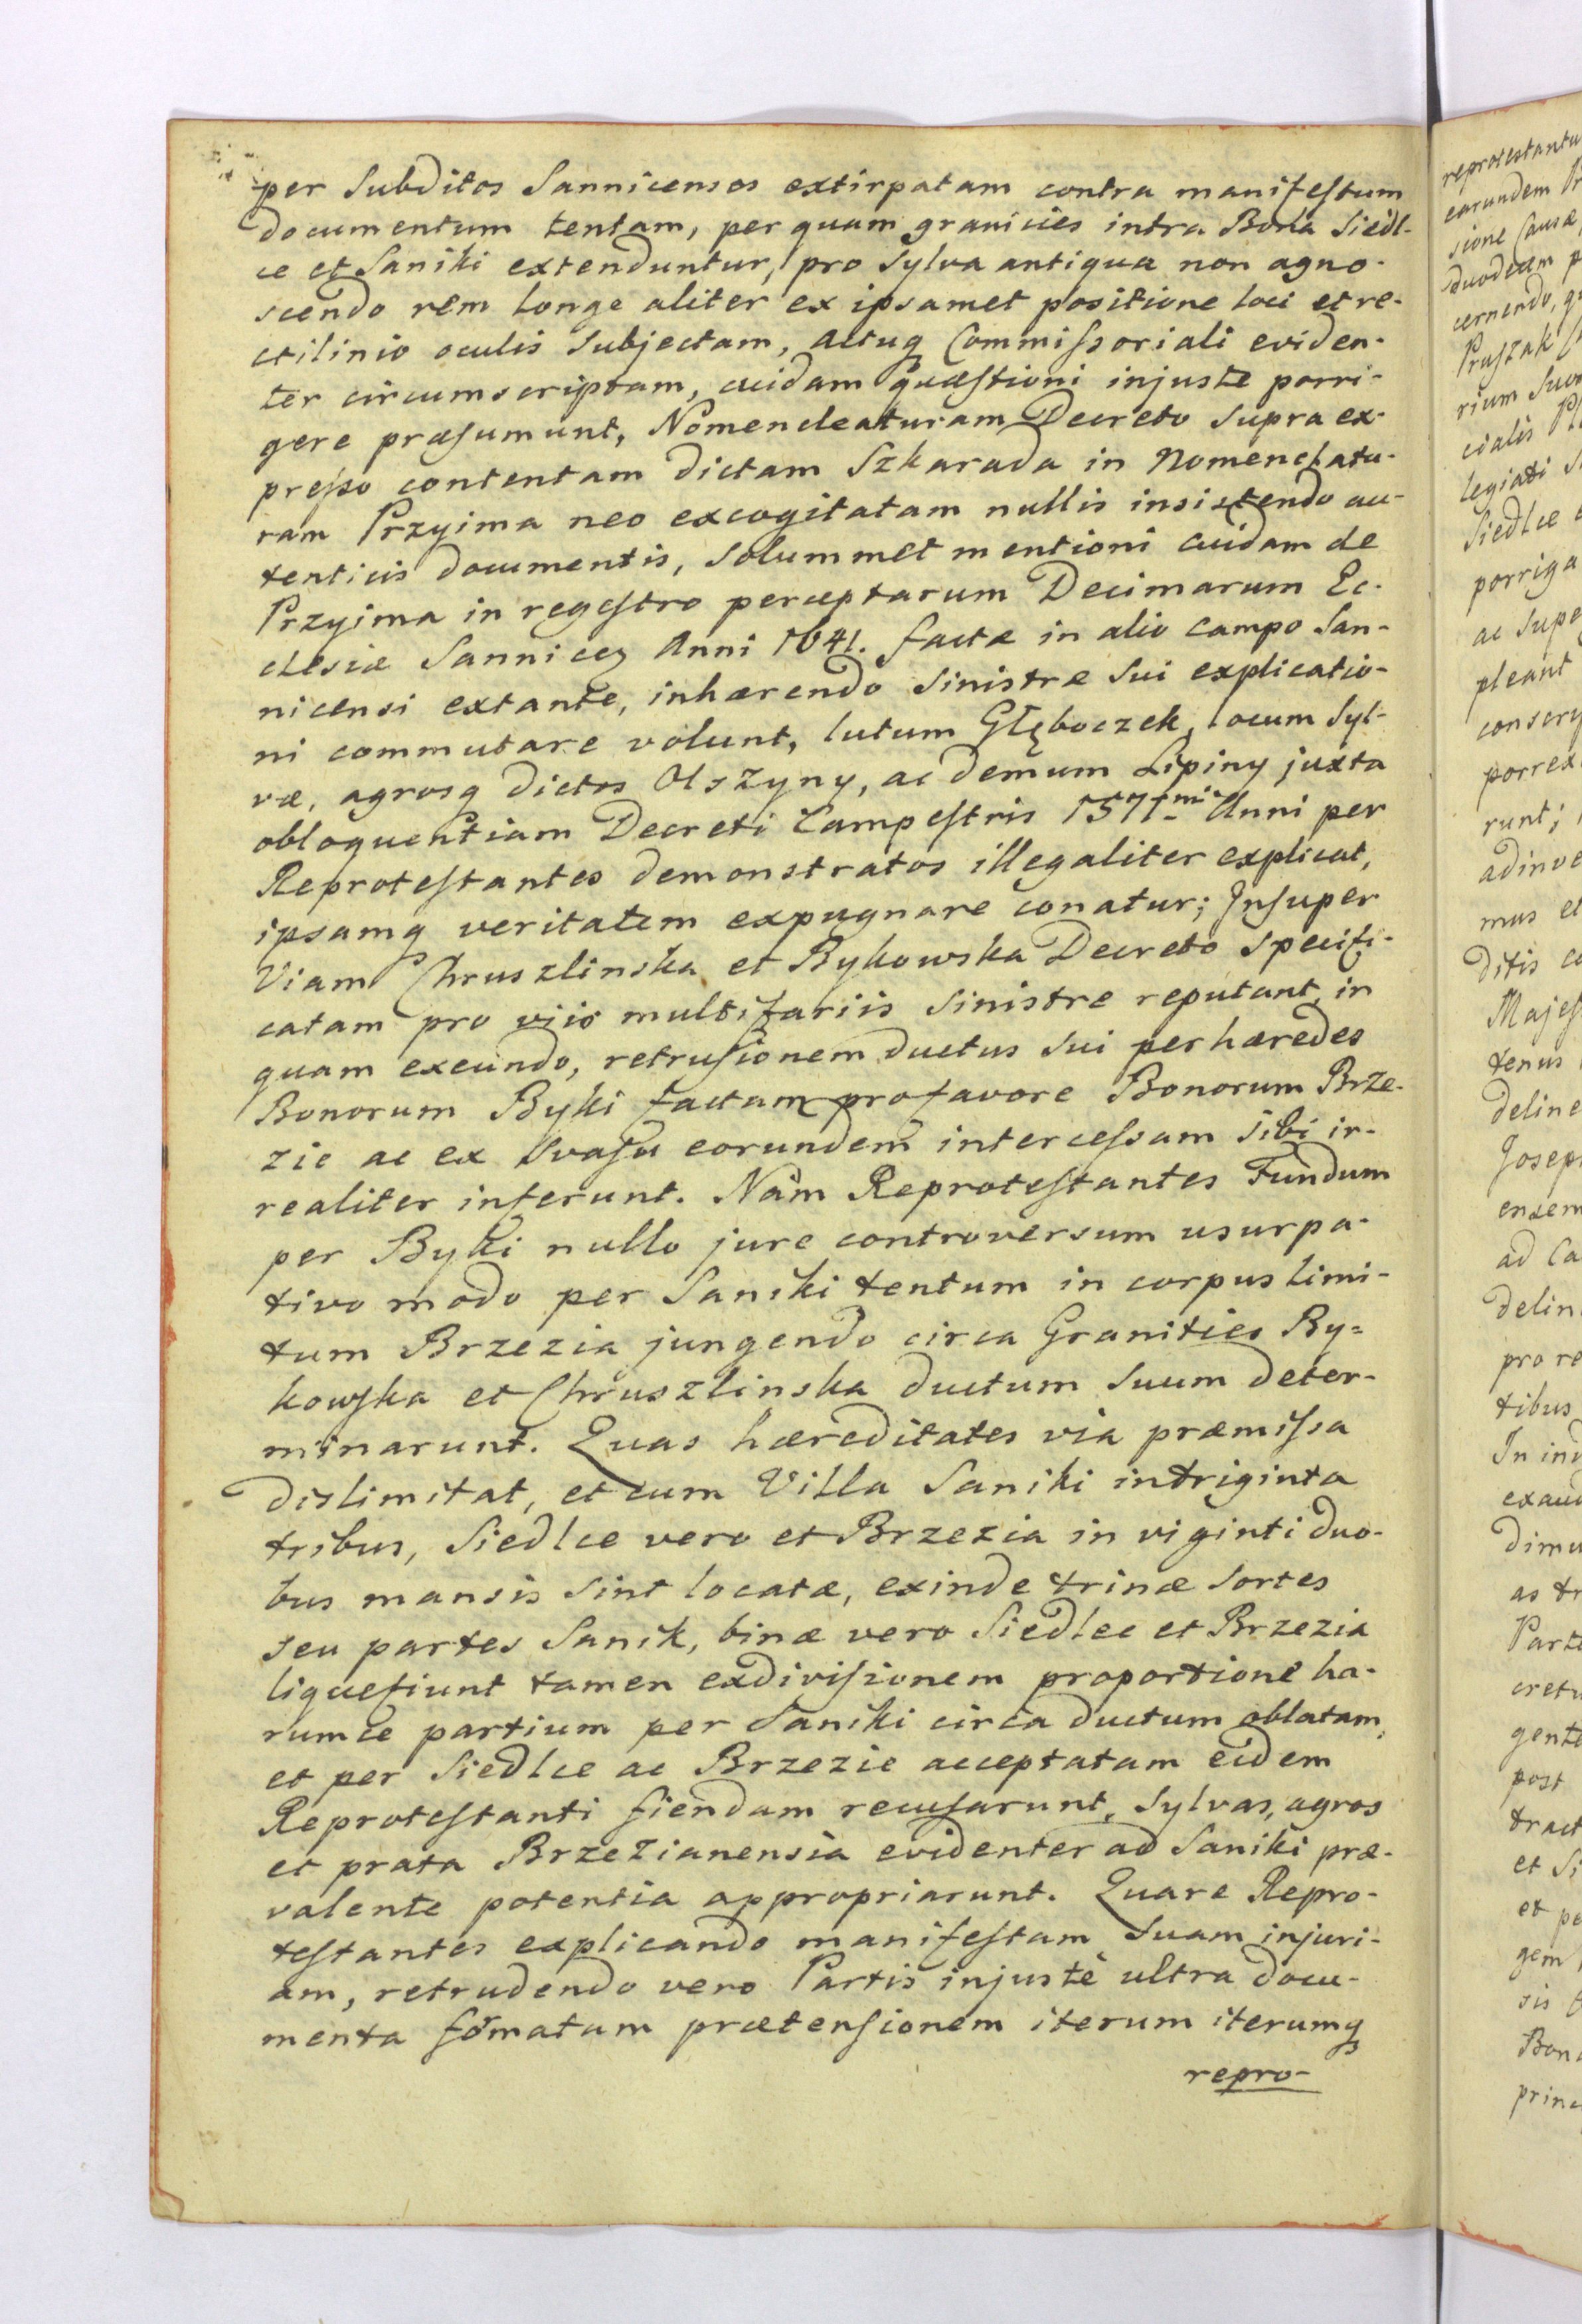 per Subditos Sannicensos extirpatam contra manifestum
documentum tentam, per quam granicies intra Bona Siedl-
ce et Saniki extenduntur, pro Sylva antiqua non agno-
scendo rem longe aliter ex ipsamet positione loci et re-
ctilinio oculis Subjectam, Actuq Commissoriali eviden-
ter circumscriptam, cuidam quæstioni injuste porri-
gere præsumunt, Nomencleaturam Decreto Supra ex-
presso contentam dictam Szkarada in Nomenclatu-
ram Przyima neo excogitatam nullis insistendo au-
tenticis documentis, Solummet mentioni cuidam de
Przyima in regestro perceptarum Decimarum Ec-
clesiæ Sannicen Anni 1641. factæ in alio campo San-
nicensi extante, inhærendo Sinistræ Sui explicatio-
ni commutare volunt, lutum Głęboczek, locum Syl-
væ, agrosq dictos Olszyny, ac demum Lipiny juxta
obloquentiam Decreti Campestris 1571mi Anni per
Reprotestantes demonstratos illegaliter explicat,
ipsamq veritatem expugnare conatur; Insuper
Viam Chruszlinska et Bykowska Decreto Specifi-
catam pro viis multifariis Sinistre reputant, in
quam exeundo, retrusionem ductus Sui per hæredes
Bonorum Byki factam pro favore Bonorum Brze-
zie ac ex Svasu eorundem intercessam Sibi ir-
realiter inferunt. Nam Reprotestantes Fundum
per Byki nullo jure controversum usurpa-
tivo modo per Saniki tentum in corpus limi-
tum Brzezia jungendo circa Granities By=
kowska et Chruszlinska ductum Suum deter-
minarunt. Quas hæreditates via præmissa
dislimitat, et cum Villa Saniki in triginta
tribus, Siedlce vero et Brzezia in viginti duo-
bus mansis Sint locatæ, exinde trinæ Sortes
seu partes Sanik, binæ vero Siedlce et Brzezia
liquefiunt tamen exdivisionem proportione ha-
rumce partium per Saniki circa ductum oblatam,
et per Siedlce ac Brzezie acceptatam eidem
Reprotestanti fiendam recusarunt, Sylvas, agros
et prata Brzezianensia evidenter ad Saniki præ-
valente potentia appropriarunt. Quare Repro-
testantes explicando manifestam Suam injuri-
am, retrudendo vero Partis injuste ultra docu-
menta formatam prætensionem iterum iterumq
repro-